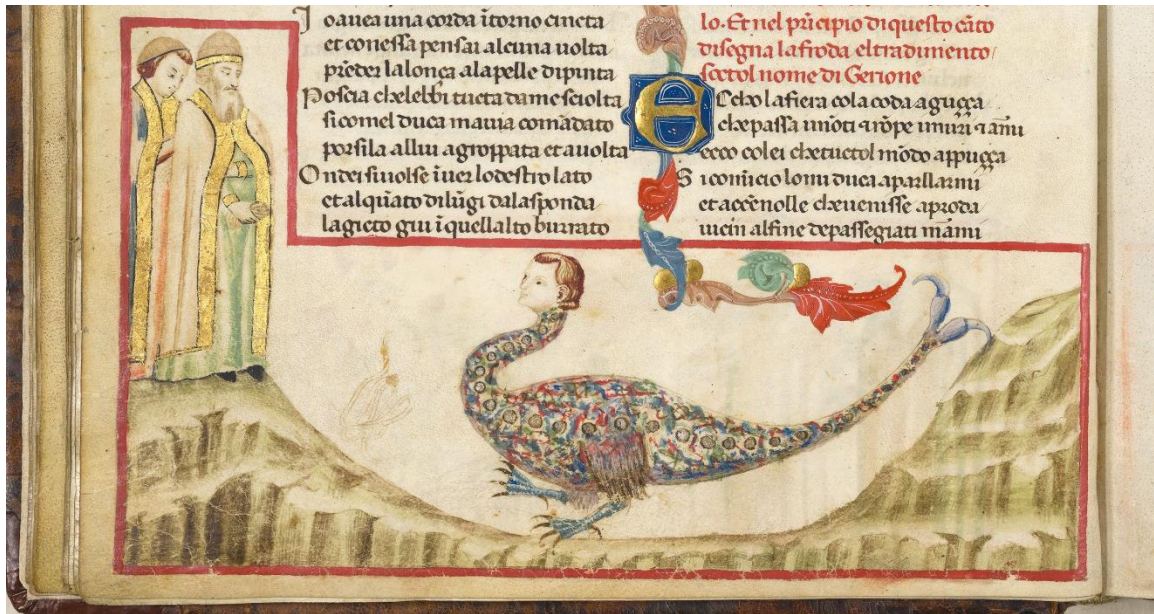 Io auea una corda ītorno cincta
et conessa pensai alcuna uolta
prēder lalonça alapelle dipinta
Poscia chelebbi tucta dame sciolta
sicomel duca mauia comādato
porsila allui agroppata et auolta
Ondei siuolse īuer lodestro lato
et alquāto dilūgi dalasponda
lagicto giu īquellalto burrato
lo. Et nel prīcipio di questo cāto
disegna lafroda eltradimento/
soctol nome di Gerione
Echo lafiera cola coda aguçça
chepassa imōti ⁊ rōpe imuri ⁊ armi
ecco colei chetuctol mōdo appuçça
Si comīcio lomi duca aparllarmi
et accēnolle cheuenisse aproda
uicin alfine depassegiati mārmi